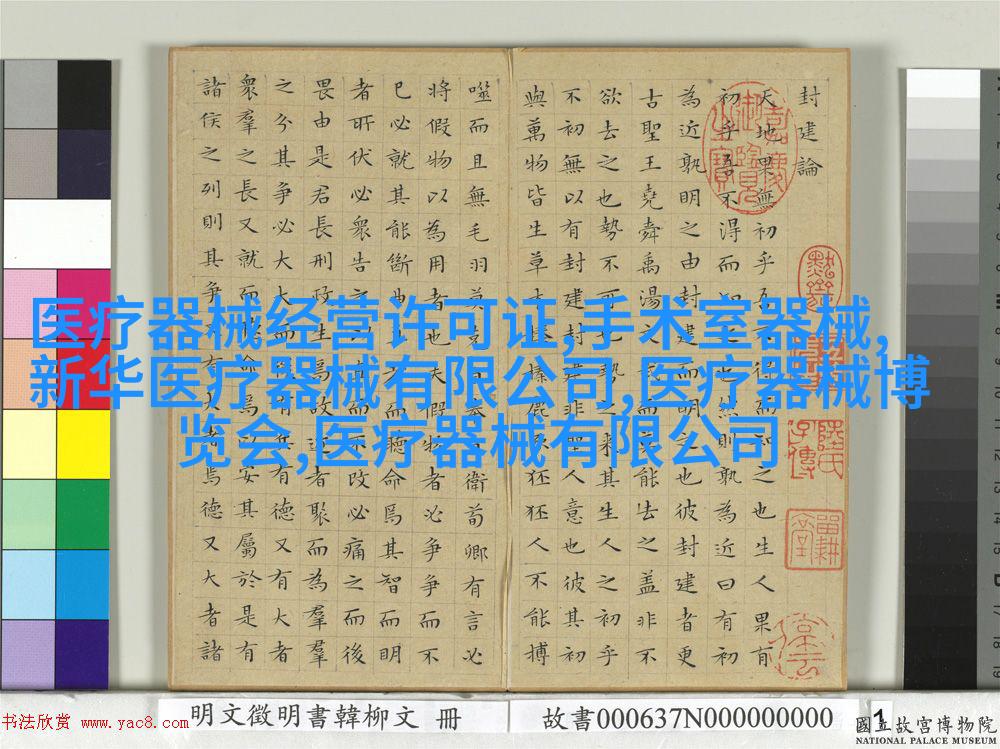 封建論
天地果無初乎吾不得而知之也生人果有
初乎吾不得而知之也然則孰為近曰有初
為近孰明之由封建而明之也彼封建者更
古聖王堯舜禹湯文而能去之蓋非不
欲去之也勢不可也勢之來其生人之初乎
不初無以有封建封建非聖人意也彼其初
與萬物皆生草木榛榛狉狉人不能搏
噬而且無毛羽莫克自衛荀卿有言必
將假物以為用者也夫假物者必爭爭而不
已必就其能斷曲而聽命焉其智而明
者所伏必衆告之以而不改必痛之而後
畏由是君長刑政生焉故近者聚而為羣
之分其爭必大大而後有兵有德又有大者
衆羣之長又就而聽命焉以安其屬於是有
諸侯之列則其爭有大者焉德又大者諸
嘉慶御覽之寶
医疗器械经营许可证,手术室器械,
新华医疗器械有限公司,医疗器械博
览会,医疗器械有限公司
书法欣赏 www.yac8.com
明文徵明書韓柳文 冊
故書000637N000000000
1
國立故宮博物院
NATIONAL PALACE MUSEUM